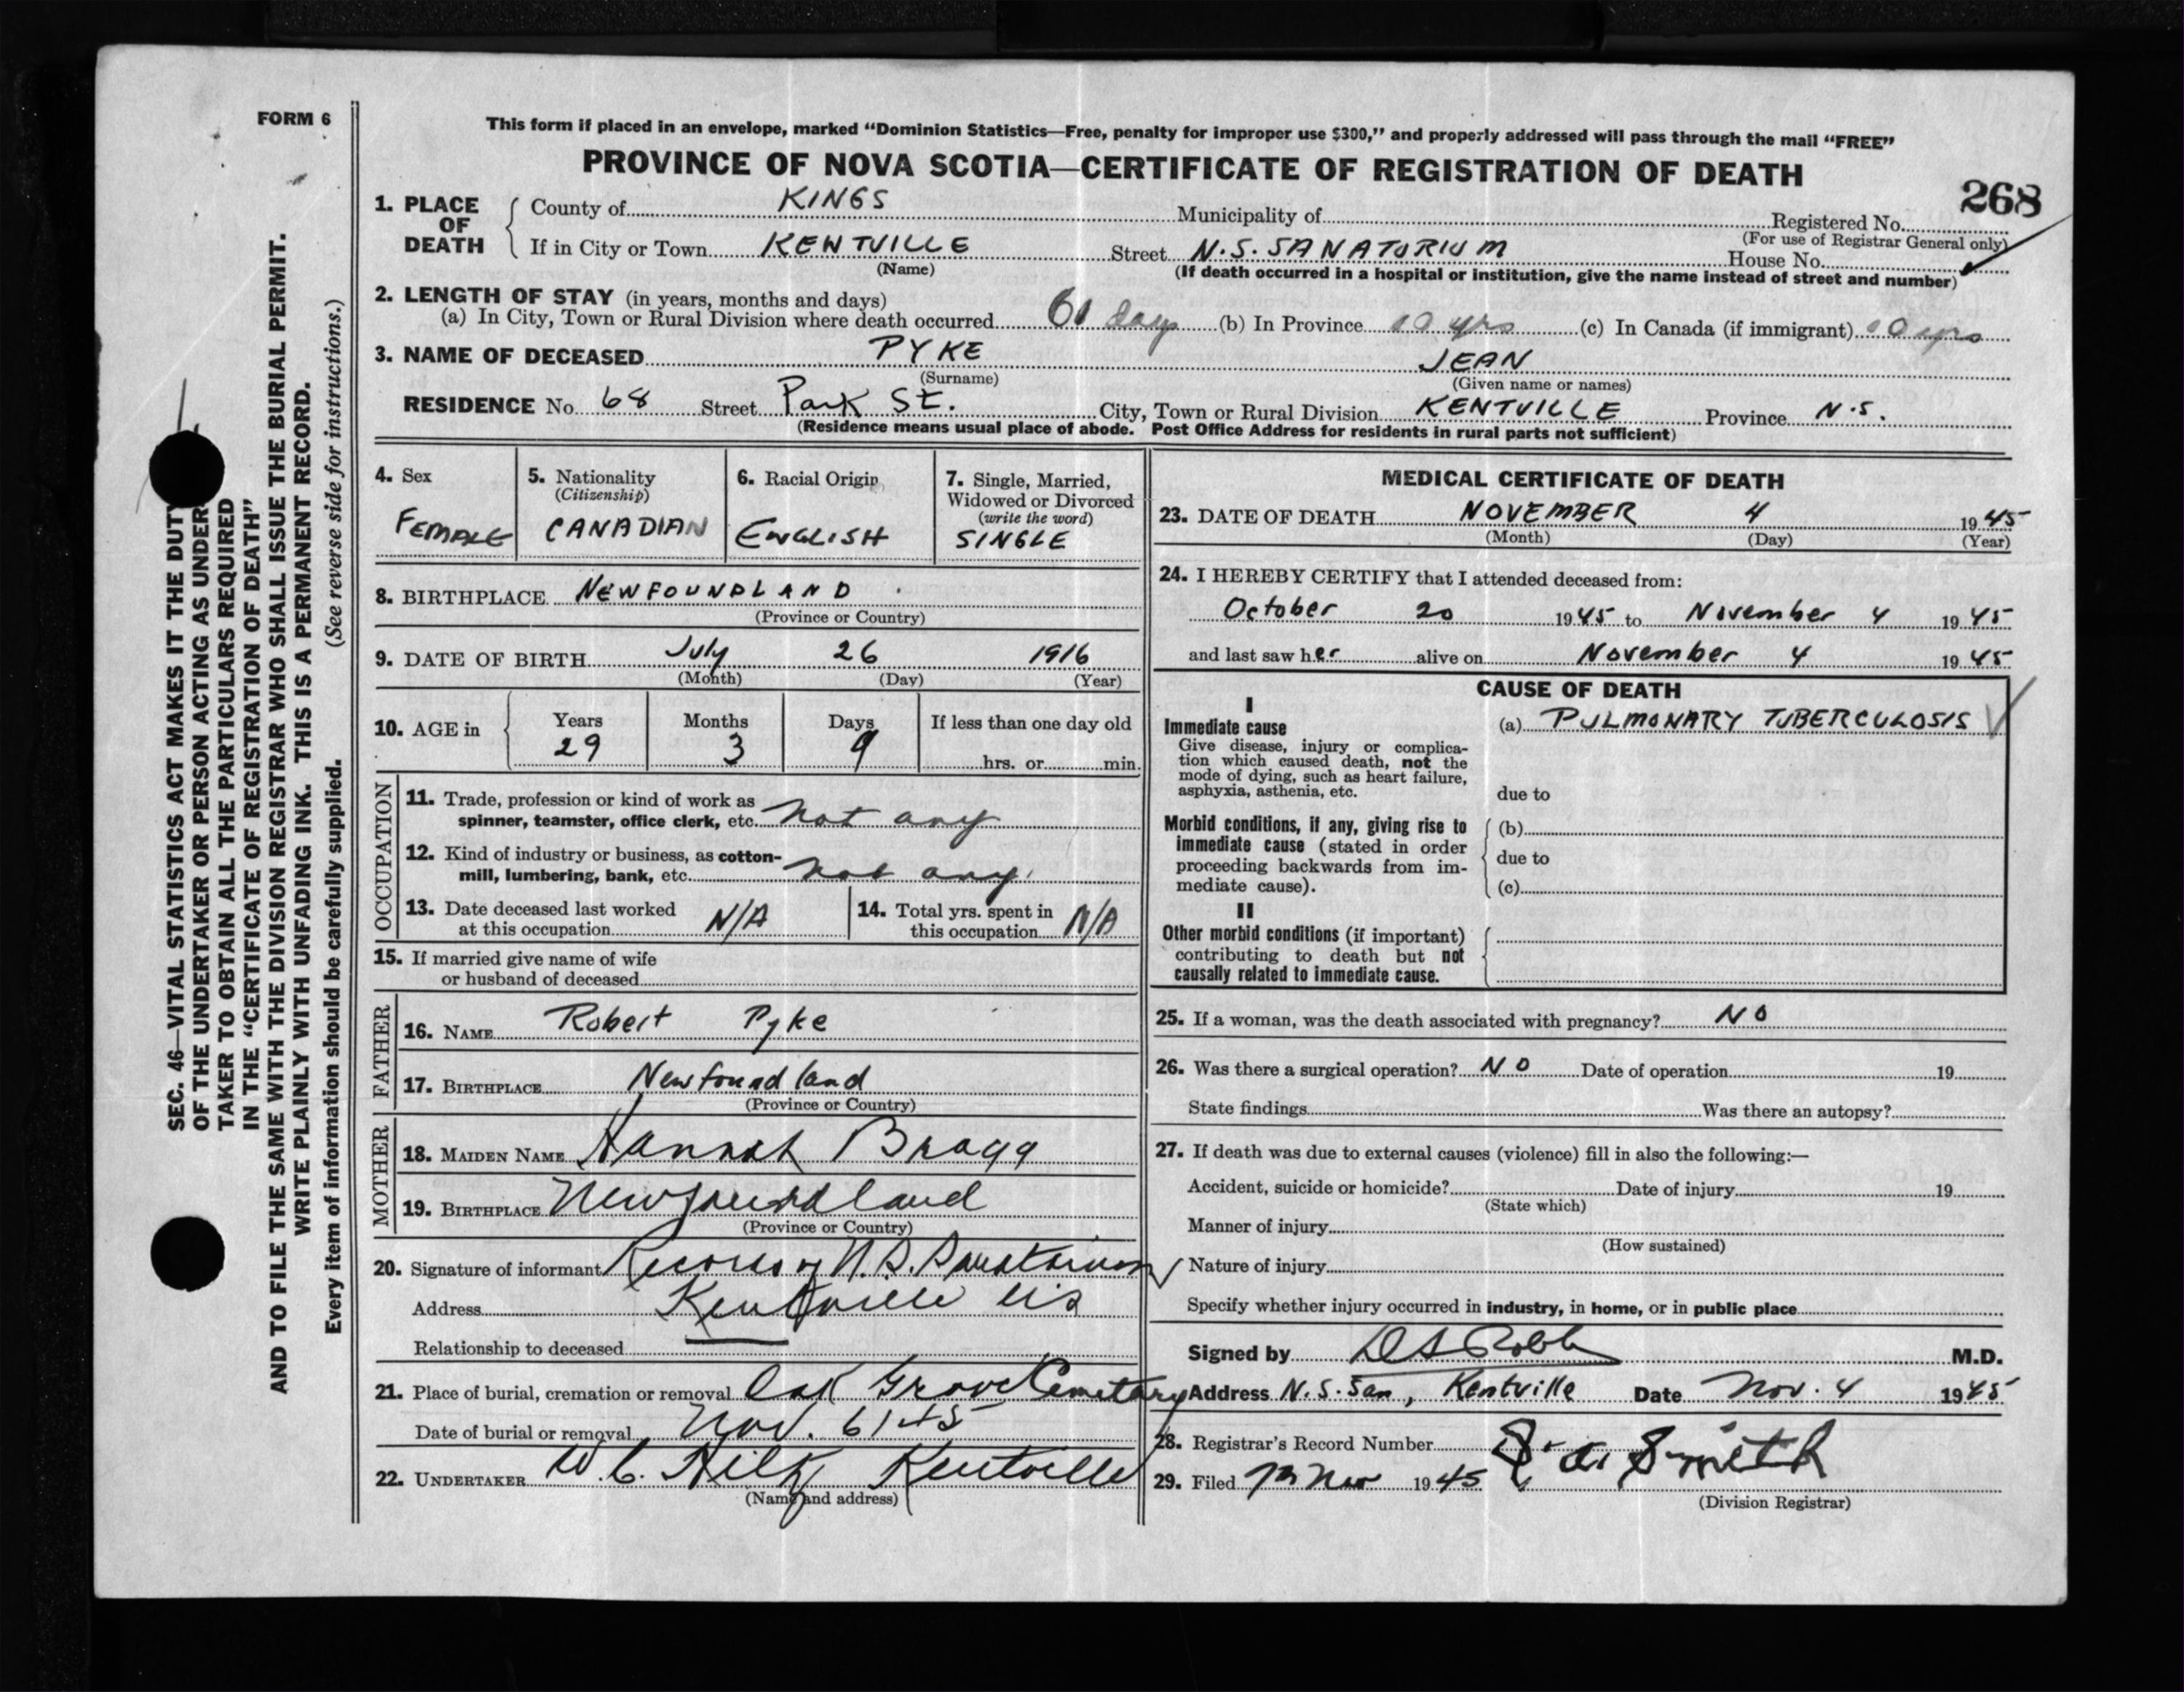 FORM 6
This form if placed in an envelope, marked “Dominion Statistics—Free, penalty for improper use $300,” and properly addressed will pass through the mail “FREE”
PROVINCE OF NOVA SCOTIA—CERTIFICATE OF REGISTRATION OF DEATH
268
1. PLACE OF DEATH
County of KINGS Municipality of Registered No.
(For use of Registrar General only)
If in City or Town KENTVILLE Street N.S. SANATORIUM House No.
(Name) (If death occurred in a hospital or institution, give the name instead of street and number)
2. LENGTH OF STAY (in years, months and days)
(a) In City, Town or Rural Division where death occurred days (b) In Province 10 yrs (c) In Canada (if immigrant) 10 yrs
3. NAME OF DECEASED PYKE JEAN
(Surname) (Given name or names)
RESIDENCE No. 68 Street Park St. City, Town or Rural Division KENTVILLE Province N.S.
(Residence means usual place of abode. Post Office Address for residents in rural parts not sufficient)
4. Sex FEMALE
5. Nationality (Citizenship) CANADIAN
6. Racial Origin ENGLISH
7. Single, Married, Widowed or Divorced (write the word) SINGLE
8. BIRTHPLACE NEWFOUNDLAND
(Province or Country)
9. DATE OF BIRTH July 26 1916
(Month) (Day) (Year)
10. AGE in Years 29 Months 3 Days 9 If less than one day old hrs. or min.
OCCUPATION
11. Trade, profession or kind of work as
spinner, teamster, office clerk, etc. not any
12. Kind of industry or business, as cotton-
mill, lumbering, bank, etc. not any
13. Date deceased last worked
at this occupation N/A
14. Total yrs. spent in
this occupation N/A
15. If married give name of wife
or husband of deceased
FATHER
16. NAME Robert Pyke
17. BIRTHPLACE Newfoundland
(Province or Country)
MOTHER
18. MAIDEN NAME Hannah Bragg
19. BIRTHPLACE Newfoundland
(Province or Country)
20. Signature of informant Records of N.S. Sanatorium
Address Kentville
Relationship to deceased
21. Place of burial, cremation or removal Oak Grove Cemetary
Date of burial or removal Nov. 6/45
22. UNDERTAKER W. C. Kentville
(Name and address)
MEDICAL CERTIFICATE OF DEATH
23. DATE OF DEATH NOVEMBER 4 1945
(Month) (Day) (Year)
24. I HEREBY CERTIFY that I attended deceased from:
October 20 1945 to November 4 1945
and last saw her alive on November 4 1945
CAUSE OF DEATH
I
Immediate cause
Give disease, injury or complica-
tion which caused death, not the
mode of dying, such as heart failure,
asphyxia, asthenia, etc.
(a) PULMONARY TUBERCULOSIS
due to
Morbid conditions, if any, giving rise to
immediate cause (stated in order
proceeding backwards from im-
mediate cause).
(b)
due to
(c)
II
Other morbid conditions (if important)
contributing to death but not
causally related to immediate cause.
25. If a woman, was the death associated with pregnancy? NO
26. Was there a surgical operation? NO Date of operation 19
State findings Was there an autopsy?
27. If death was due to external causes (violence) fill in also the following:—
Accident, suicide or homicide? Date of injury 19
(State which)
Manner of injury
(How sustained)
Nature of injury
Specify whether injury occurred in industry, in home, or in public place
Signed by D S Robb M.D.
Address N.S. San, Kentville Date Nov. 4 1945
28. Registrar's Record Number
29. Filed Nov 1945 Smith
(Division Registrar)
SEC. 46—VITAL STATISTICS ACT MAKES IT THE DUTY
OF THE UNDERTAKER OR PERSON ACTING AS UNDER
TAKER TO OBTAIN ALL THE PARTICULARS REQUIRED
IN THE “CERTIFICATE OF REGISTRATION OF DEATH”
AND TO FILE THE SAME WITH THE DIVISION REGISTRAR WHO SHALL ISSUE THE BURIAL PERMIT.
WRITE PLAINLY WITH UNFADING INK. THIS IS A PERMANENT RECORD.
Every item of information should be carefully supplied. (See reverse side for instructions.)